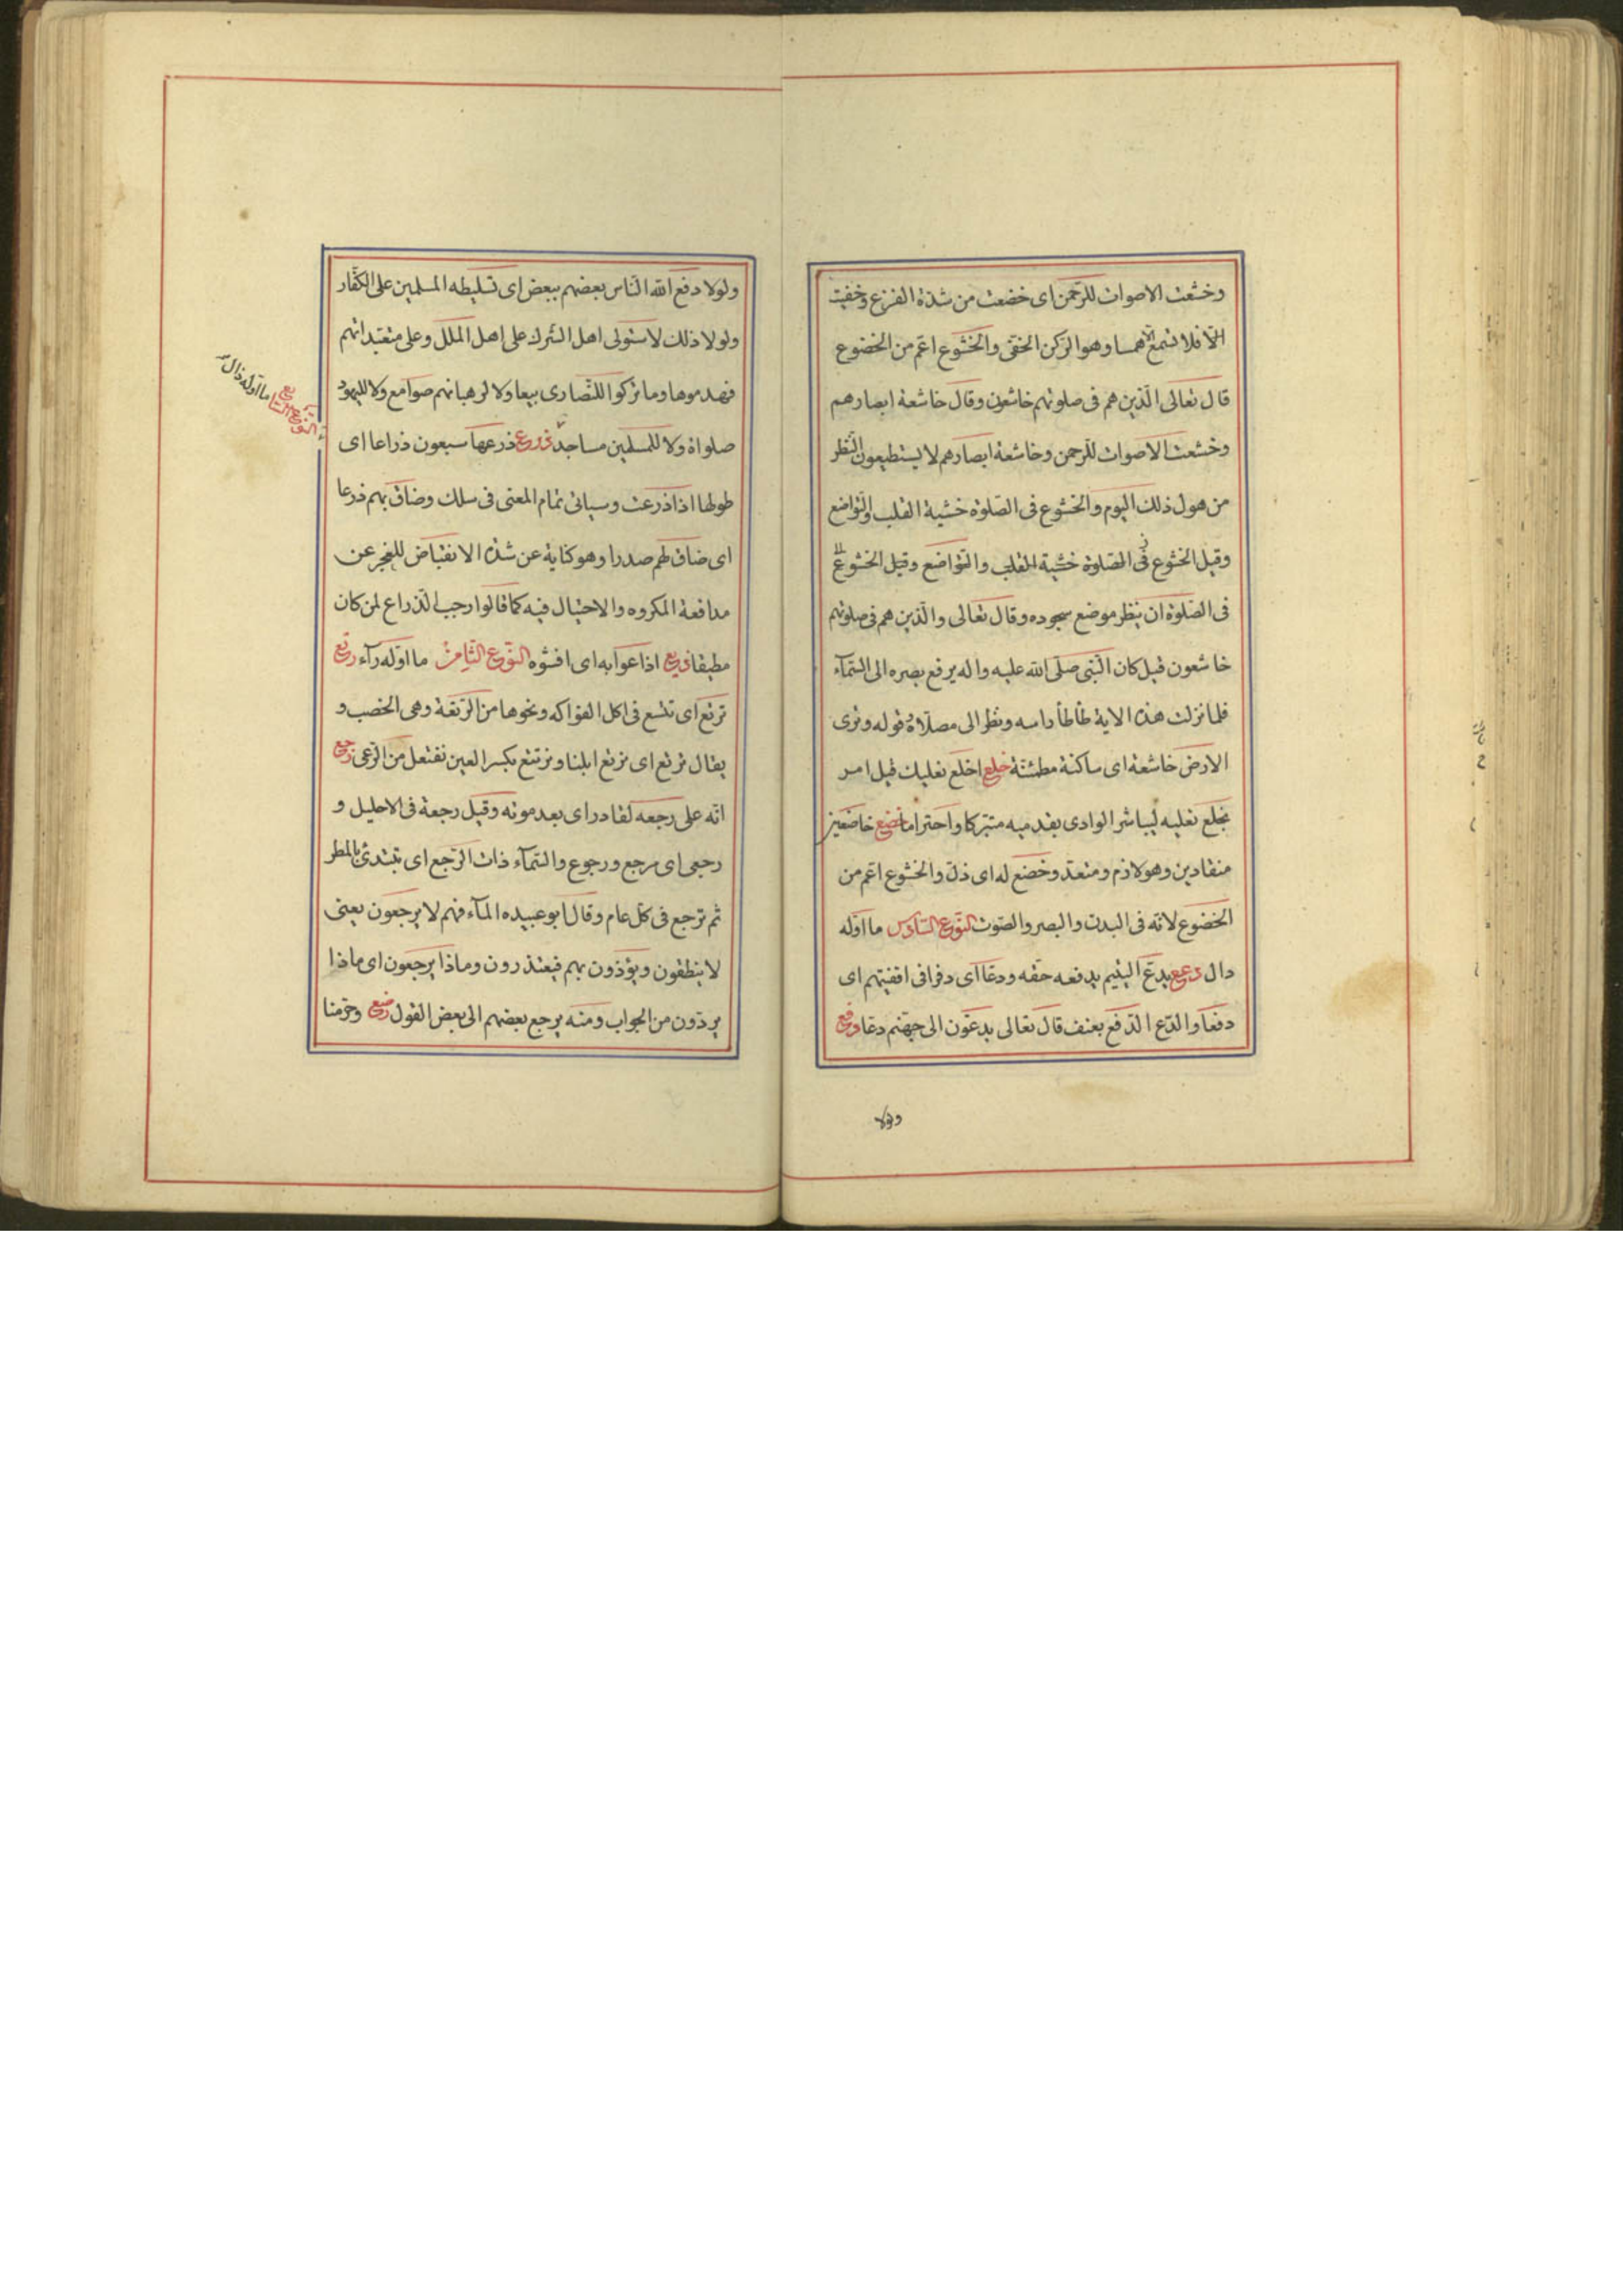 وخشعت الاصوات للرحمن اى خضعت من شدة الفزع وخفيت
الّا فلا تسمع الّا همسا وهو الركن الخفى والخشوع اعم من الخضوع
قال تعالى الّذين هم فى صلوتهم خاشعون وقال خاشعة ابصارهم
وخشعت الاصوات للرحمن وخاشعة ابصارهم لا يستطيعون النّظر
من هول ذلك اليوم والخشوع فى الصلوة خشية القلب والتواضع
وقيل الخشوع فى الصلوة خشية القلب والتواضع وقيل الخشوع
فى الصّلوة ان ينظر موضع سجوده وقال تعالى والّذين هم فى صلوتهم
خاشعون قيل كان النّبى صلّى الله عليه واله يرفع بصره الى السّمآء
فلما نزلت هذه الاية طأطأ راسه ونظر الى مصلاه قوله وترى
الارض خاشعة اى ساكنة مطمئنّة خلع اخلع نعليك قيل امر
بخلع نعليه ليباشر الوادى بقدميه متبركا واحتراما خضع خاضعين
منقادين وهو لازم ومتعد وخضع له اى ذلّ والخشوع اعم من
الخضوع لانّه فى البدن والبصر والصّوت النّوع السّادس ما اوّله
دال دعع يدعّ اليتيم يدفعه حقه ودعّا اى دفرا فى اقفيتهم اى
دفعا والدّع الدّفع بعنف قال تعالى يدعّون الى جهنّم دعّا دفع
ولولا
ولولا دفع الله النّاس بعضهم ببعض اى تسليطه المسلمين على الكفّار
ولولا ذلك لاستولى اهل الشّرك على اهل الملل وعلى متعبداتهم
فهدموها وما تركوا للنّصارى بيعا ولا لرهبانهم صوامع ولا لليهود
صلواة ولا للمسلمين مساجد ذرع ذرعها سبعون ذراعا اى
طولها اذا ذرعت وسياتى تمام المعنى فى سلك وضاق بهم ذرعا
اى ضاق لهم صدرا وهو كناية عن شدة الانقباض للعجز عن
مدافعة المكروه والاحتيال فيه كما قالوا رحب الذّراع لمن كان
مطيقا ذيع اذاعوا به اى افشوه النّوع الثّامن ما اوّله رآء رتع
ترتع اى تتسع فى اكل الفواكه ونحوها من الرّتعة وهى الخصب و
يقال نرتع اى نرتع ابلنا ونرتتع بكسر العين نفتعل من الرّعى رجع
انّه على رجعه لقادر اى بعد موته وقيل رجعة فى الاحليل و
رجعى اى مرجع ورجوع والسّمآء ذات الرّجع اى تبتدئ بالمطر
ثم ترجع فى كلّ عام وقال ابو عبيده المآء فهم لا يرجعون يعنى
لا ينطقون ويؤذون بهم فيعتذرون وماذا يرجعون اى ماذا
يردّون من الجواب ومنه يرجع بعضهم الى بعض القول رضع وحرّمنا
النّوع السّابع ما اوّله ذال